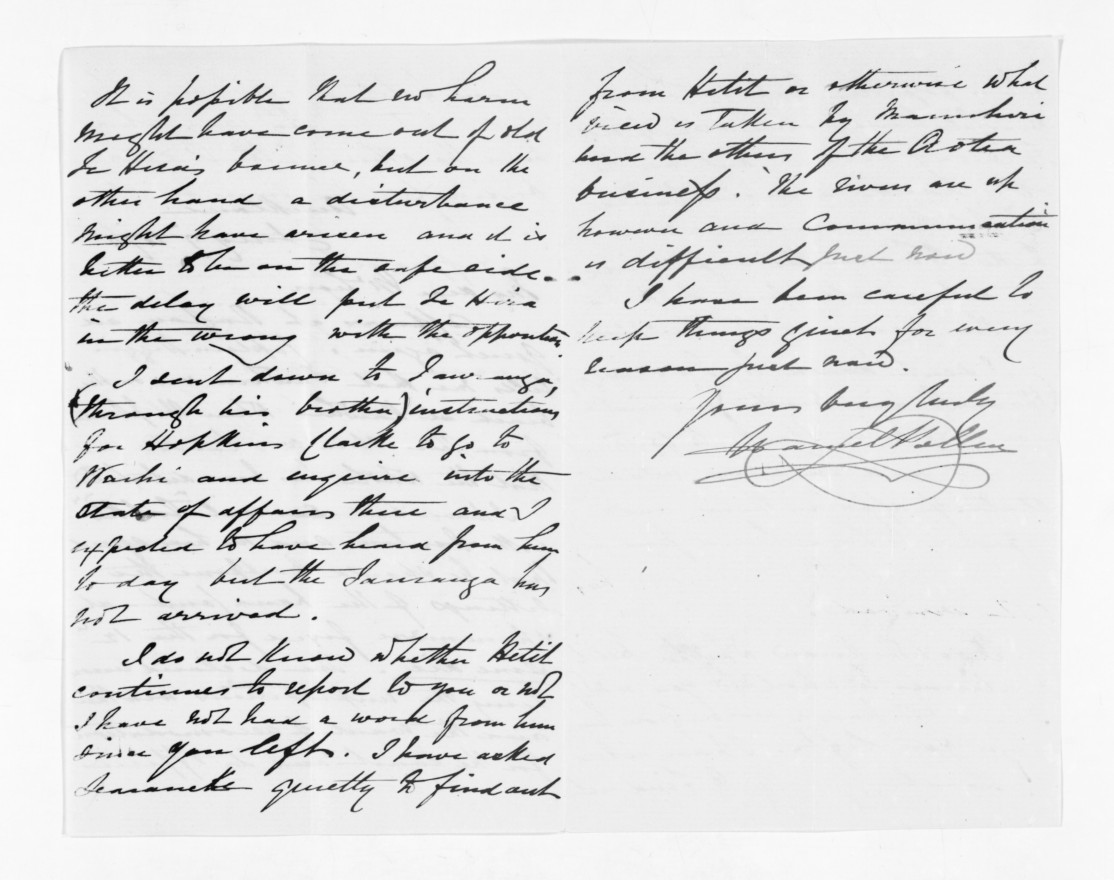 It is possible that no harm
might have come out of old
Te Hira's bounce, but on the
other hand a disturbance
might have arisen and it is
better to be on the safe side.
the delay will put Te Hira
in the wrong with the opposition.
I sent down to Tauranga,
(through his brother) instructions
for Hopkins Clarke to go to
Waihi and enquire into the
state of affairs there and I
expected to have heard from him
to day but the Tauranga has
not arrived.
I do not know whether Hetit
continues to report to you or not
I have not had a word from him
since you left. I have asked
quietly to find out
from Hetit or otherwise what
view is taken by Manuhiri
and the others of the Aotea
business. The rivers are up
however and Communication
is difficult just now
I have been careful to
keep things quiet for every
reason just now.
Yours very truly
Daniel Pollen